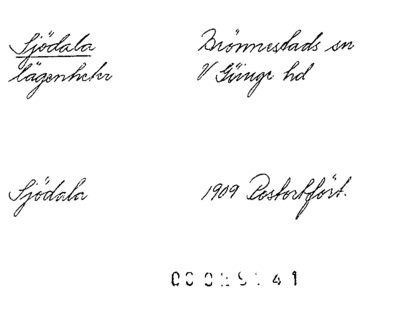 Sjödala Brönnestads sn
lägenheter V Göinge hd
Sjödala 1909 Postortfört.